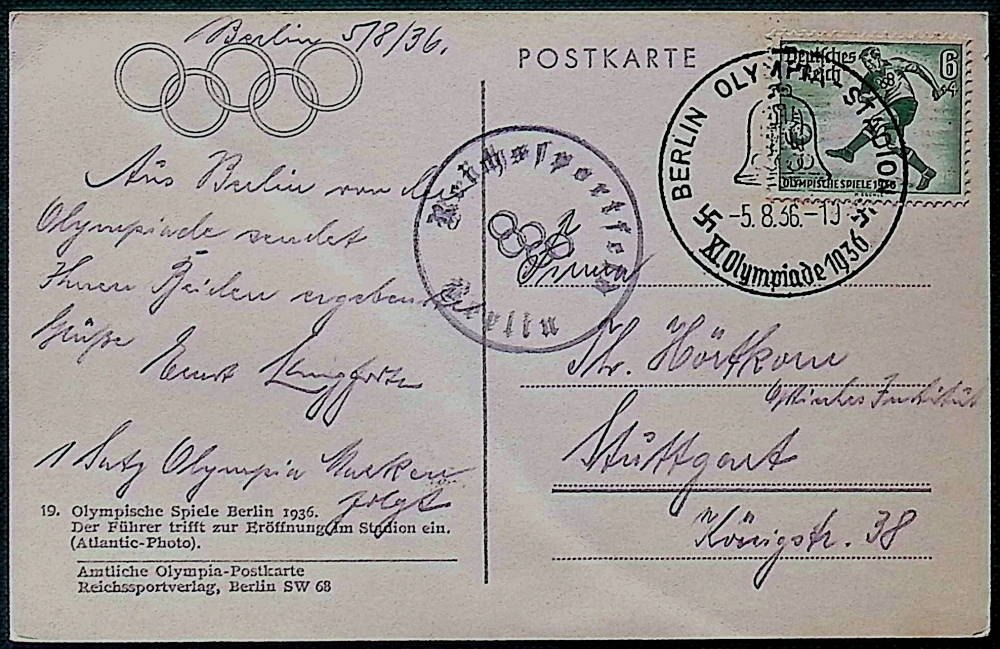 Berlin 5/8/36.
POSTKARTE
Deutsches
Reich
6+4
OLYMPISCHE SPIELE 1936
BERLIN OLYMPIA-STADION
-5.8.36.-19
XI. Olympiade 1936
Reichssportfeld
Aus Berlin von der
Olympiade sendet
Ihnen Beiden ergebenste
Grüße
Ernst
1 Satz Olympia Marken
folgt
Firma
Hörtkorn
Optisches Institut
Stuttgart
Königstr. 38
19. Olympische Spiele Berlin 1936.
Der Führer trifft zur Eröffnung im Stadion ein.
(Atlantic-Photo).
Amtliche Olympia-Postkarte
Reichssportverlag, Berlin SW 68